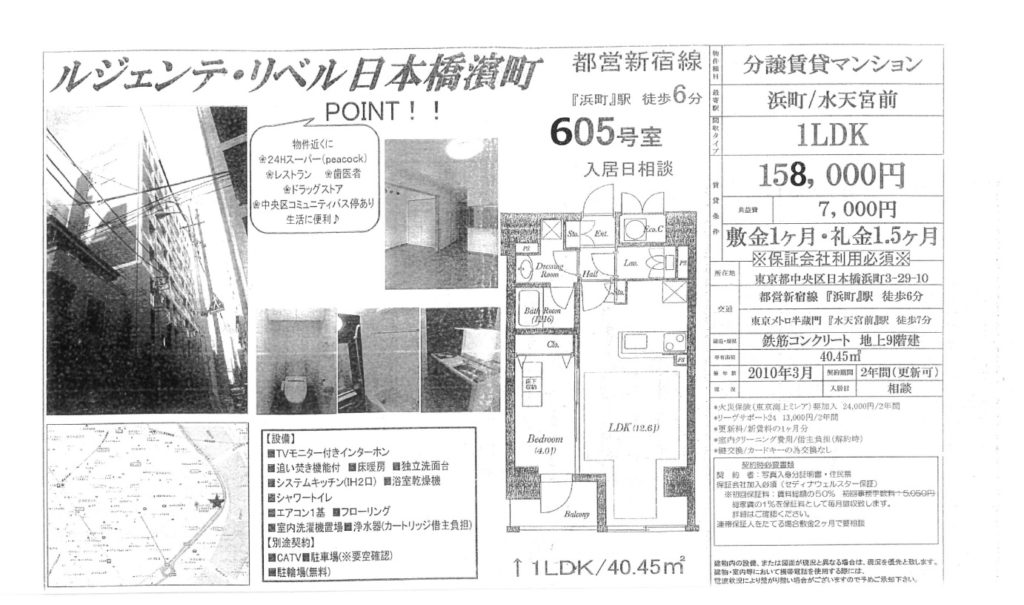 ルジェンテ・リベル日本橋濱町
都営新宿線
『浜町』駅 徒歩6分
605号室
入居日相談
POINT!!
物件近くに
❀24Hスーパー(peacock)
❀レストラン ❀歯医者
❀ドラッグストア
❀中央区コミュニティバス停あり
生活に便利♪
Sto.
Ent.
Eco.C
PS
Dressing Room
Hall
Lav.
PS
Sto.
Bath Room
(1216)
Clo.
床下収納
PS
LDK(12.6J)
Bedroom
(4.0J)
Balcony
↑1LDK/40.45㎡
【設備】
■TVモニター付きインターホン
■追い焚き機能付 ■床暖房 ■独立洗面台
■システムキッチン(IH2口) ■浴室乾燥機
■シャワートイレ
■エアコン1基 ■フローリング
■室内洗濯機置場■浄水器(カートリッジ借主負担)
【別途契約】
■CATV■駐車場(※要空確認)
■駐輪場(無料)
物件種目 分譲賃貸マンション
最寄駅 浜町/水天宮前
間取タイプ 1LDK
賃貸条件 158,000円
共益費 7,000円
敷金1ヶ月・礼金1.5ヶ月
※保証会社利用必須※
所在地 東京都中央区日本橋浜町3-29-10
交通 都営新宿線 『浜町』駅 徒歩6分
東京メトロ半蔵門 『水天宮前』駅 徒歩7分
構造・規模 鉄筋コンクリート 地上9階建
専有面積 40.45㎡
築年数 2010年3月 契約期間 2年間(更新可)
現況 入居日 相談
*火災保険(東京海上ミレア)要加入 24,000円/2年間
*リーヴサポート24 13,000円/2年間
*更新料/新賃料の1ヶ月分
*室内クリーニング費用/借主負担(解約時)
*鍵交換/カードキーの為交換なし
契約時必要書類
契約者:写真入身分証明書・住民票
保証会社加入必須(セディナウェルスター保証)
※初回保証料:賃料総額の50% 初回事務手数料:5,050円
総家賃の1%を保証料として毎月徴収致します。
詳細はご確認ください。
連帯保証人をたてる場合敷金2ヶ月で要相談
建物内の設備、または図面が現況と異なる場合は、現況を優先と致します。
建物・室内等において携帯電話を使用する際には、
電波状況により繋がり難い場合がございますので予めご承知下さい。